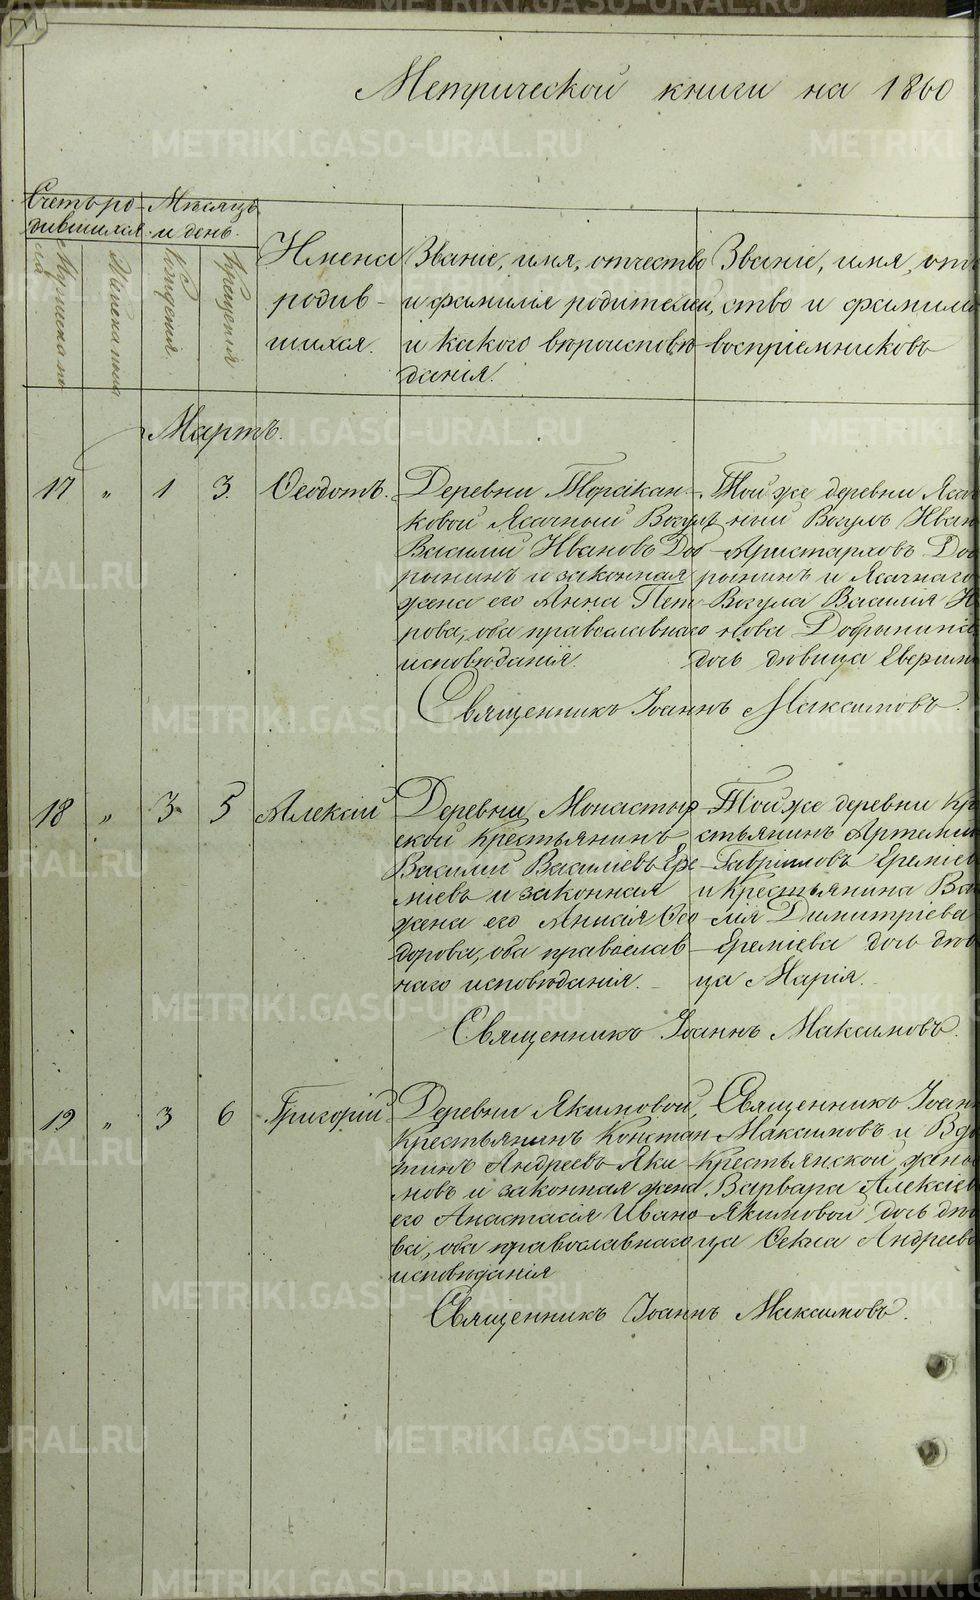 Метрической книги на 1860
Счетъ ро- Мѣсяцъ
дившихся. и день.
Мужеска пола
Женска пола
Рожденія.
Крещенія
Имена
родив-
шихся.
Званіе, имя, отчество
и фамилія родителей,
и какого вѣроисповѣ
данія.
Званіе, имя, отче
ство и фамилія
воспріемниковъ
Мартъ.
17 " 1 3. Ѳеодотъ.
Деревни
ковой Ясачный Вогулъ
Василий Ивановъ Доб
рынинъ и законная
жена его Анна Пет-
рова, оба православнаго
исповѣданія.
Той же деревни Ясач
ный Вогулъ Иван
Аристарховъ Доб
рынинъ и Ясачнаго
Вогула Василія И
нова Добрынина
дочь дѣвица
Священникъ Іоаннъ Максимовъ.
18 " 3 5 Алексій
Деревни Монастыр
ской Крестьянинъ
Василий Василіевъ Ере
міевъ и законная
жена его Анисія Ѳео
дорова, оба православ
наго исповѣданія.
Той же деревни Кре
стьянинъ Артемий
Гавріиловъ Ереміев
и Крестьянина Ва
лія Димитріева
Ереміева дочь дѣв
ца Марія.
Священникъ Іоаннъ Максимовъ.
19 " 3 6 Григорій
Деревни Якимовой,
Крестьянинъ Констан
тинъ Андреевъ Яки
мовъ и законная жена
его Анастасія Ивано
ва, оба православнаго
исповѣданія
Священникъ Іоан
Максимовъ и Вдо
Крестьянской жены
Варвара Алексіев
Якимовой дочь дѣв
ца Ѳекла Андреева
Священникъ Іоаннъ Максимовъ.
METRIKI.GASO-URAL.RU